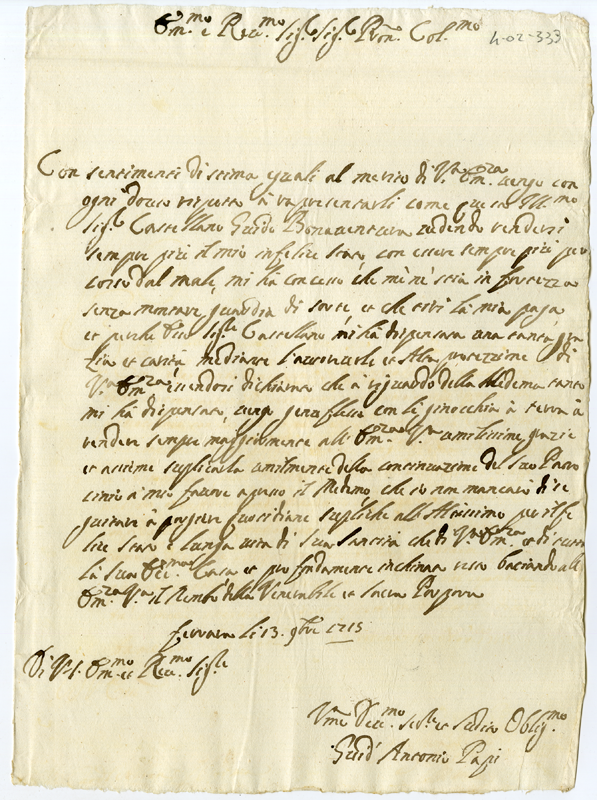 Em.mo e Rev.mo Sig.r Sig.r Pron. Col.mo
4-02-333
Con sentimenti di stima quali al merito di V.ra Em.za vengo con
ogni douto rispetto à rapresentarli come questo Ill.mo
Sig.r Castellano Guido Bonaventura vedendo rendersi
sempre più il mio infelice stato con essere sempre più per
corso dal male, mi hà concesso che mi ne stia in fortezza
senza montare guardia di sorte, et che tiri la mia paga
et perche Sig.r Castellano mi hà dispensata una tanta gra
tia et carità mediante l'autorevole et Alta protezzione di
V.ra Em.za essendosi dichiarato che à riguardo della Medema tanto
mi hà dispensato, vengo genuflesso con le ginocchia à terra à
rendere sempre maggiormente all' Em.za V.ra umilissime grazie
et assieme suplicarla umilmente della continuazione del suo Patro
cinio à mio favore apresso il Medemo che io non mancarò di se
guitare à porgere quotidiane supliche all'Altissimo per il fe
lice stato e lunga vita di Sua Santità che di V.ra Em.za et di tutta
la sua Ecc.ma Casa et profondamente inchinato resto baciando all'
Em.za V.ra il lembo della Venerabile et Sacra Porpora
Ferrara li 13. 9bre 1715
Di V.S. Em.mo et Rev.mo Sig.re
Um.o Dev.mo et Oblig.mo
Guid' Antonio Papi